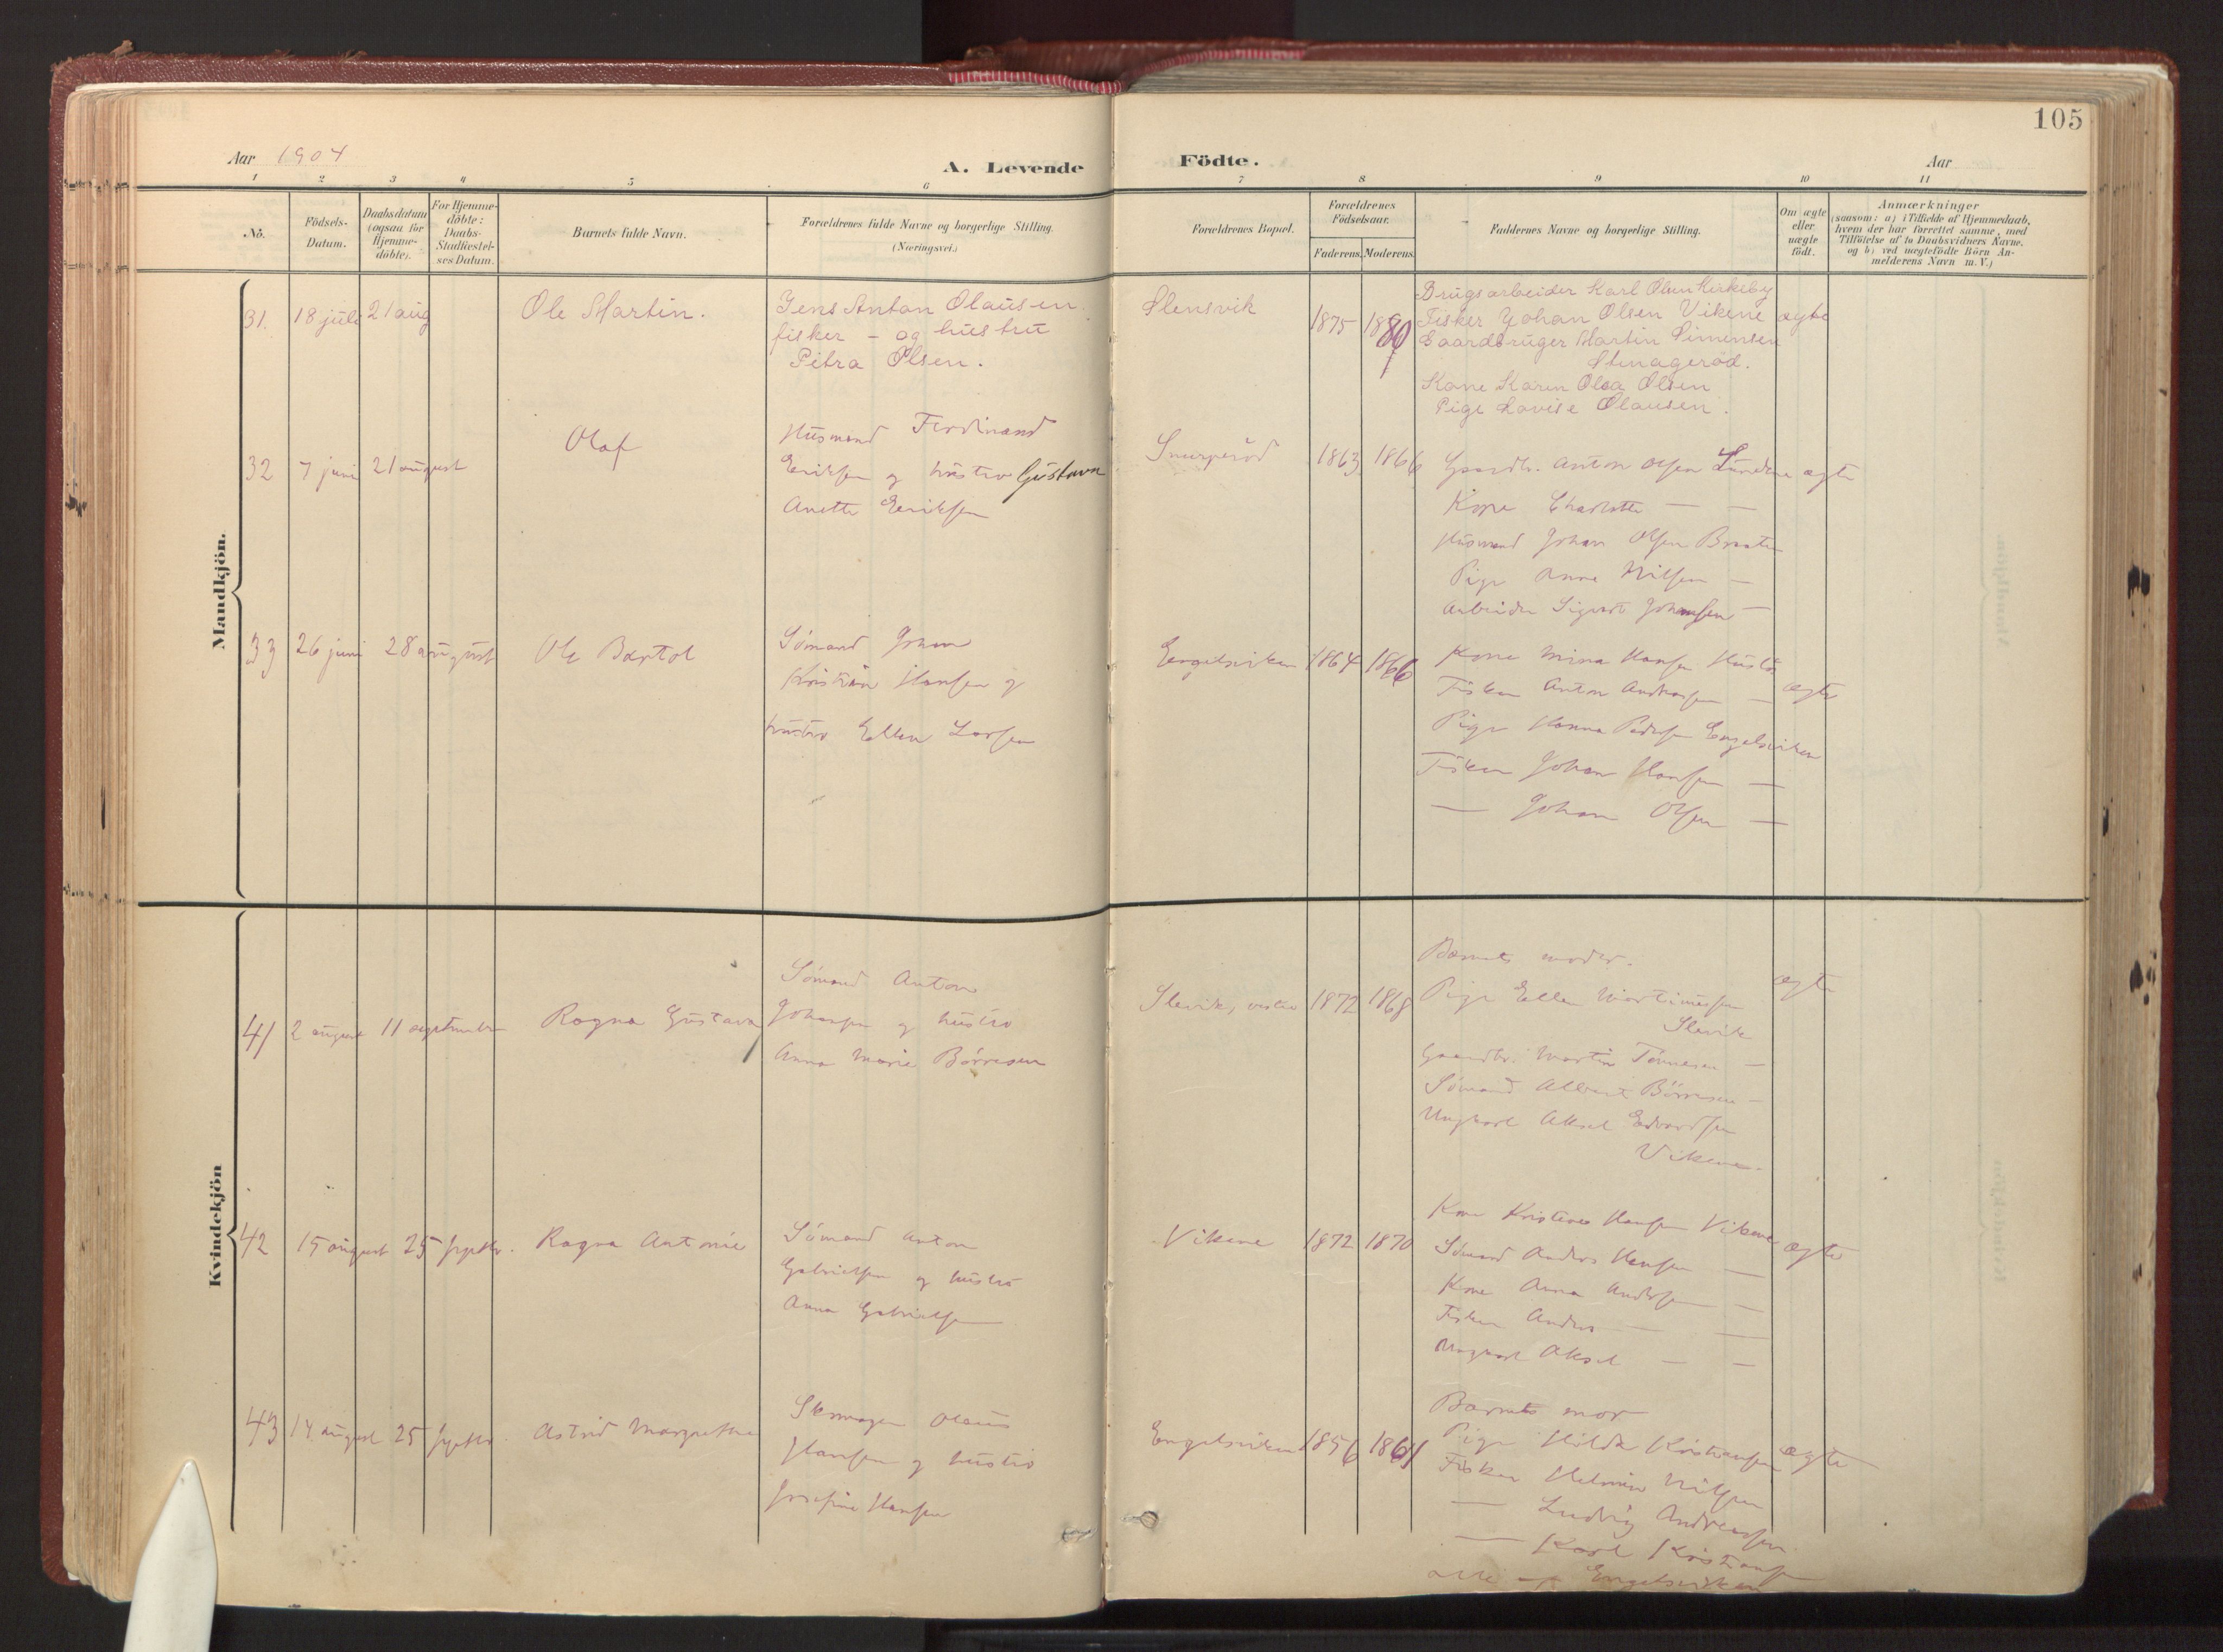 105
Aar 1904
A. Levende
Födte.
Aar
1 2 3 4 5 6 7 8 9 10 11
No.
Födsels-
Datum.
Daabsdatum
(ogsaa for
Hjemme-
döbte).
For Hjemme-
döbte:
Daabs-
Stadfæstel-
ses Datum.
Barnets fulde Navn.
Forældrenes fulde Navne og borgerlige Stilling.
(Næringsvei.)
Forældrenes Bopæl.
Forældrenes
Födselsaar.
Faderens.
Moderens.
Faddernes Navne og borgerlige Stilling.
Om ægte
eller
uægte
födt.
Anmærkninger
(saasom: a) i Tilfælde af Hjemmedaab,
hvem der har forrettet samme, med
Tilföielse af to Daabsvidners Navne.
og b) ved uægtefödte Börn An-
melderens Navn m. V.)
Mandkjön.
31. 18 juli 21 aug
Ole Martin.
Jens Anton Olausen.
fisker - og hustru
Petra Olsen.
Slensvik
1875 1880
Brugsarbeider Karl Olsen Kirkeby
Fisker Johan Olsen Vikene
Gaardbruger Martin Simensen
Stenageröd.
Kone Karen Olea Olsen
Pige Lovise Olausen.
ægte
32 7 juni 21 august
Olaf
Husmand Ferdinand
Eriksen og hustru Gustava
Anette Eriksen
1863 1866
Gaardbr. Anton Olsen Lunden
Kone Charlotte — —
Husmand Johan Olsen Braaten
Pige Anna Nilsen —
Arbeider Sigurd Johansen —
ægte
33 26 juni 28 august
Ole Bartol
Sömand Johan
Kristian Hansen og
hustru Ellen Larsen
Engelsviken
1864 1866
Kone Mina Hansen
Fisker Anton Andreassen —
Pige Hanna Pedersen Engelsviken
Fisker Johan Hansen —
— Johan Olsen —
ægte
Kvindekjön
41 2 august 11 september
Ragna Gustava
Sömand Anton
Johansen og hustru
Anna Marie Börresen
Slevik, vestre
1872 1868
Barnets moder.
Pige Ellen Martinussen
Slevik
Gaardbr. Martin Tönnesen —
Sömand Albert Börresen —
Ungkarl Aksel Edvardsen
Vikene.
ægte
42 15 august 25 septbr.
Ragna Antonie
Sömand Anton
Gabrielsen og hustru
Anna Gabrielsen
Vikene
1872 1870
Kone Kristine Hansen Vikene
Sömand Anders Hansen —
Kone Anna Andersen —
Fisker Anders — —
Ungkarl Aksel — —
ægte
43 14 august 25 septbr.
Astrid Margrethe
Skomager Olaus
Hansen og hustru
Josefine Hansen
Engelsviken
1856 1861
Barnets mor
Pige Hilda Kristiansen
Fisker Helmer Nilsen
— Ludvig Andreassen
— Karl Kristiansen
alle af Engelsviken
ægte